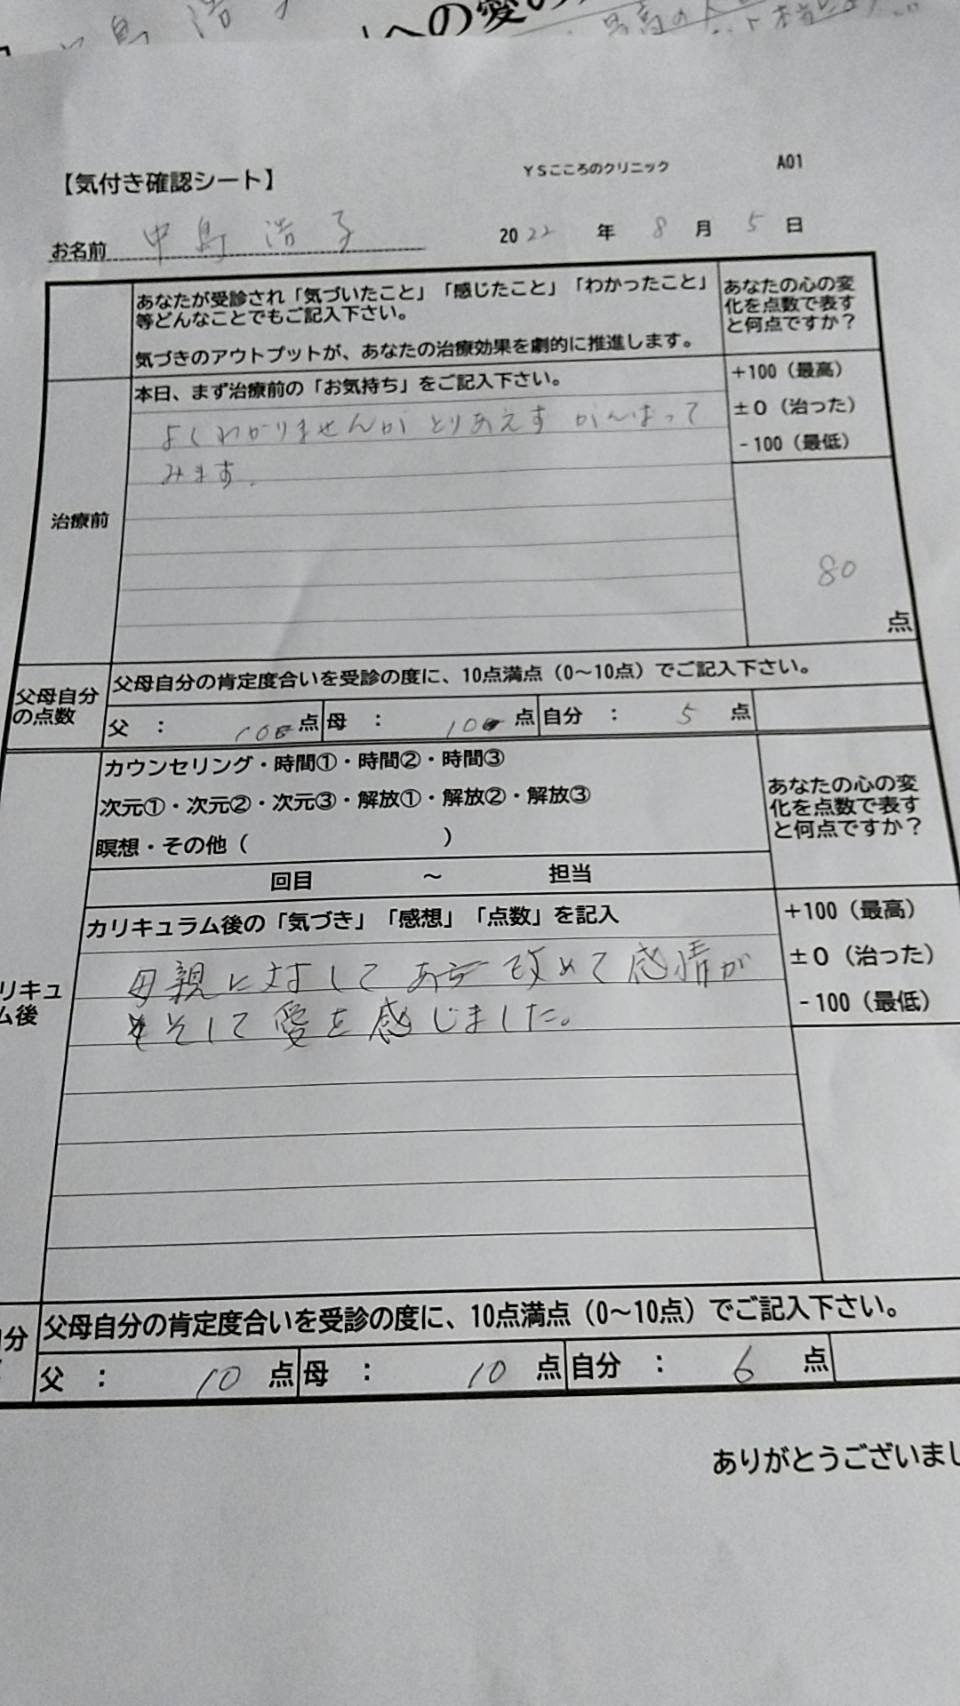 への愛の
【気付き確認シート】
YSこころのクリニック
A01
お名前 中島 浩子
2022 年 8 月 5 日
あなたが受診され「気づいたこと」「感じたこと」「わかったこと」
等どんなことでもご記入下さい。
気づきのアウトプットが、あなたの治療効果を劇的に推進します。
あなたの心の変
化を点数で表す
と何点ですか？
本日、まず治療前の「お気持ち」をご記入下さい。
+100（最高）
±0（治った）
-100（最低）
よくわかりませんが とりあえず がんばって
みます。
治療前
80
点
父母自分
の点数
父母自分の肯定度合いを受診の度に、10点満点（0～10点）でご記入下さい。
父 ： 10 点 母 ： 10 点 自分 ： 5 点
カウンセリング・時間①・時間②・時間③
次元①・次元②・次元③・解放①・解放②・解放③
瞑想・その他（ ）
あなたの心の変
化を点数で表す
と何点ですか？
回目 ～ 担当
カリキュラム後の「気づき」「感想」「点数」を記入
+100（最高）
±0（治った）
-100（最低）
リキュ
ム後
母親に対して 改めて感情が
そして愛を感じました。
父母自分の肯定度合いを受診の度に、10点満点（0～10点）でご記入下さい。
分
父 ： 10 点 母 ： 10 点 自分 ： 6 点
ありがとうございまし